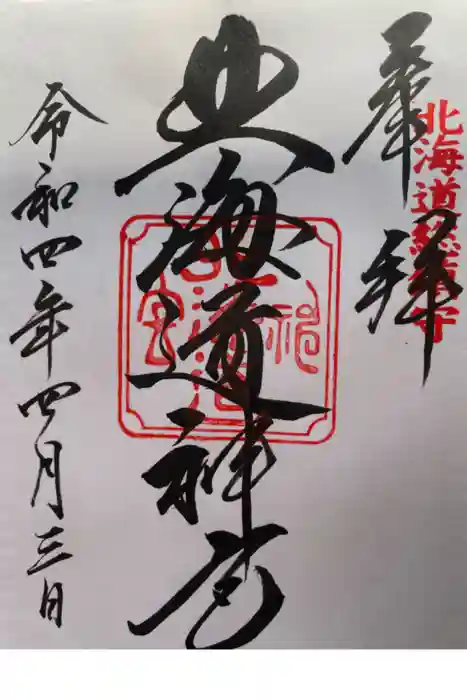 奉拝
北海道総鎮守
北海道神宮
令和四年四月三日